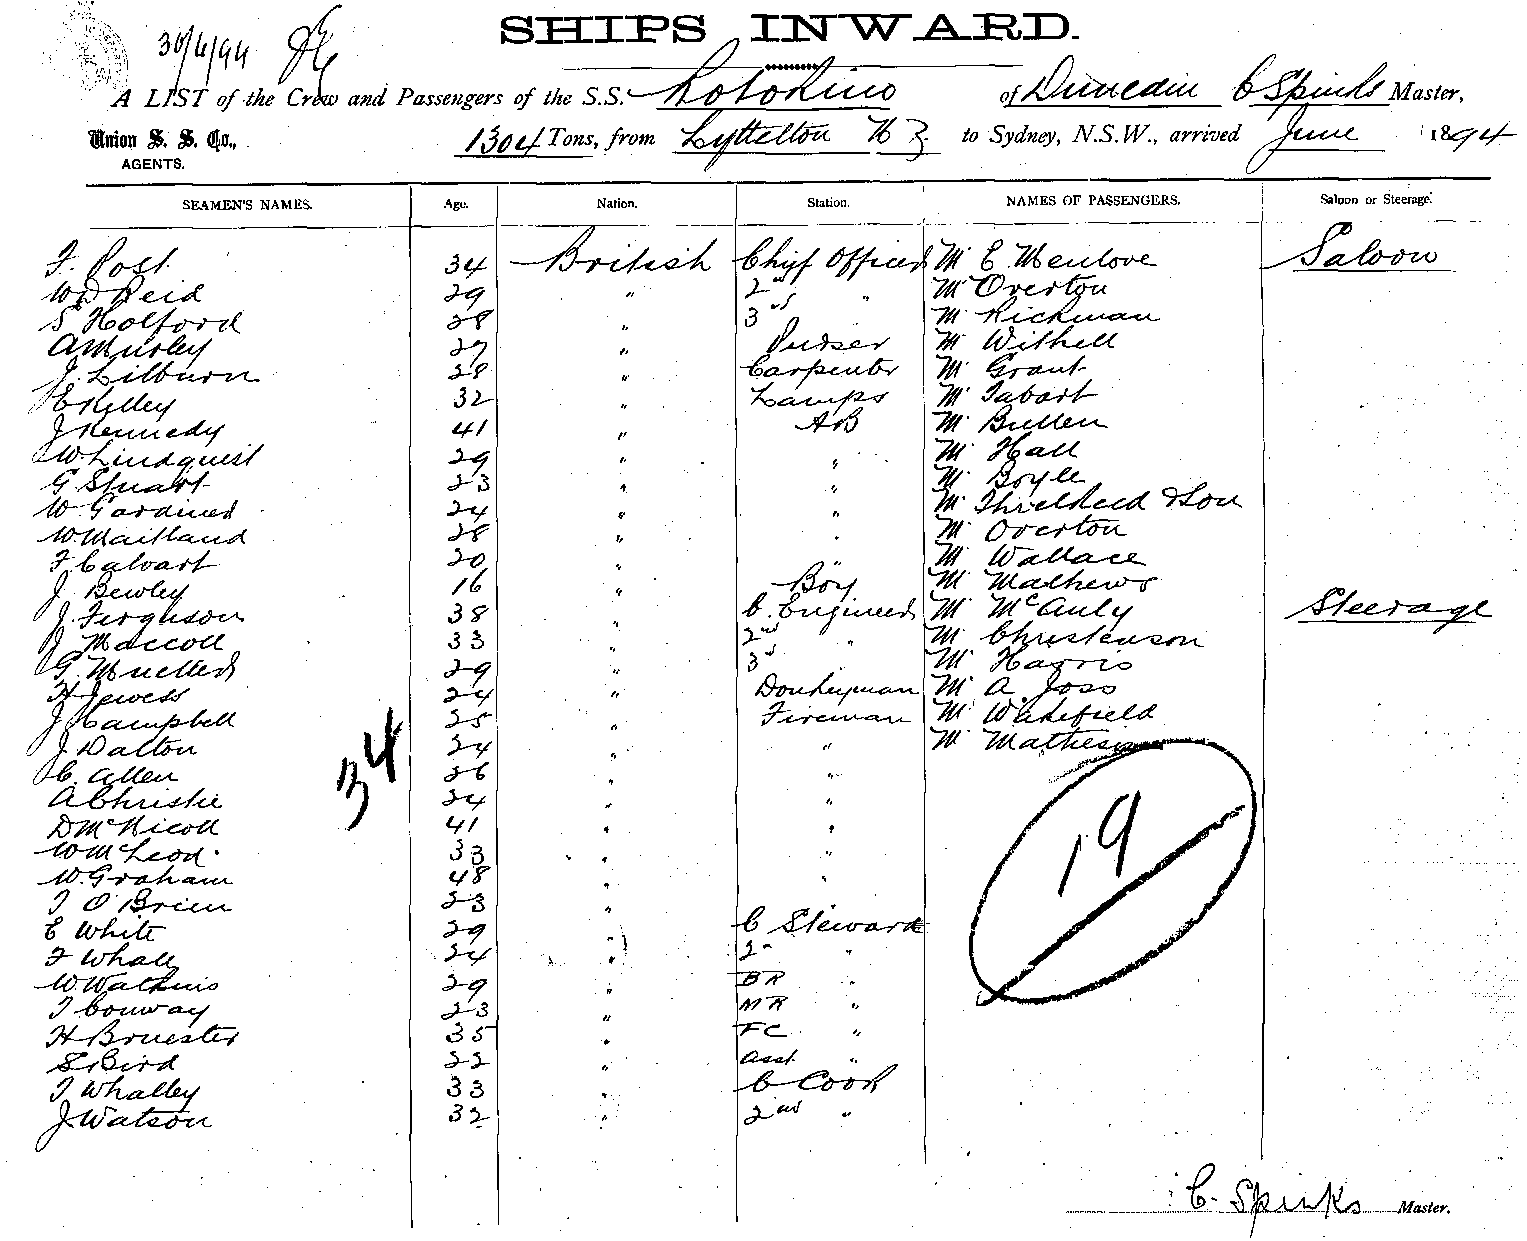 30/6/94
SHIPS INWARD.
A LIST of the Crew and Passengers of the S.S. Rotokino of Dunedin C Spinks Master,
Union S. S. Co., AGENTS. 1304 Tons, from Lyttelton N Z. to Sydney, N.S.W., arrived June 1894
SEAMEN'S NAMES. Age. Nation. Station. NAMES OF PASSENGERS. Saloon or Steerage.
F. Post 34 British Chief Officer Mr E Menlove Saloon
W D Reid 29 " 2nd " Mr Overton
S Holford 28 " 3rd Mr Rickman
A Murley 27 " Purser Mr Withell
J. Lilburn 28 " Carpenter Mr Grant
C Kelley 32 " Lamps Mr Tabart
J Kennedy 41 " AB Mr Bullen
W. Lindquist 29 " " Mr Hall
G Stuart 23 " " Mr Boyle
W. Gardiner 24 " " Mr Threlkeld & Son
W. Maitland 28 " " Mr Overton
F Calvart 20 " " Mr Wallace
J Bewley 16 " Boy Mr Mathews
J. Ferguson 38 " C. Engineer Mr McAuly Steerage
J Maccoll 33 " 2nd " Mr Christenson
G. Mueller 29 " 3rd Mr Harris
H Jewess 24 " Donkeyman Mr A Joss
J Campbell 25 " Fireman Mr Wakefield
J Dalton 24 " " Mr Matheson
C. Allen 26 " "
A Christie 24 " "
D McNicoll 41 " "
W McLeod 33 " "
W. Graham 48 " "
T O'Brien 23 "
E White 29 " C Steward
F Whall 24 " 2nd "
W. Watkins 29 " BR "
T Conway 23 " MR "
H Bruester 35 " FC "
S. Bird 22 " Asst "
T Whalley 33 " C Cook
J. Watson 32 " 2nd "
34
19
C. Spinks Master.